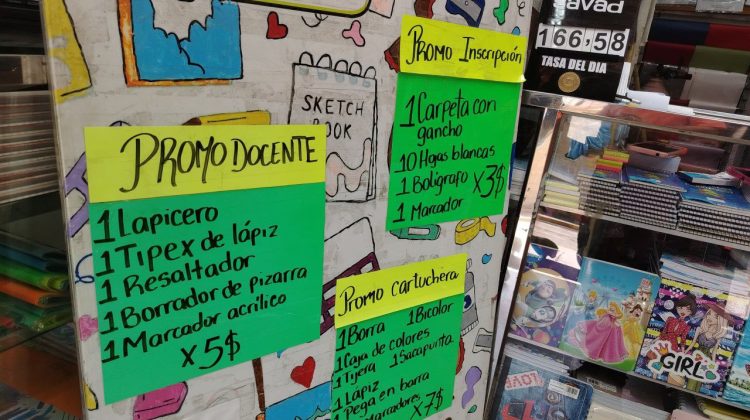 PROMO DOCENTE
1 Lapicero
1 Tipex de lápiz
1 Resaltador
1 Borrador de pizarra
1 Marcador acrílico
x5$
SKETCH
BOOK
PROMO Inscripción
1 Carpeta con
gancho
10 Hojas blancas
1 Bolígrafo x3$
1 Marcador
Promo cartuchera
1 Borra 1 Bicolor
1 Caja de colores
1 Tijera 1 Sacapunta
1 Lápiz
1 Pega en barra
Marcadores x7$
166,58
TASA DEL DIA
GIRL